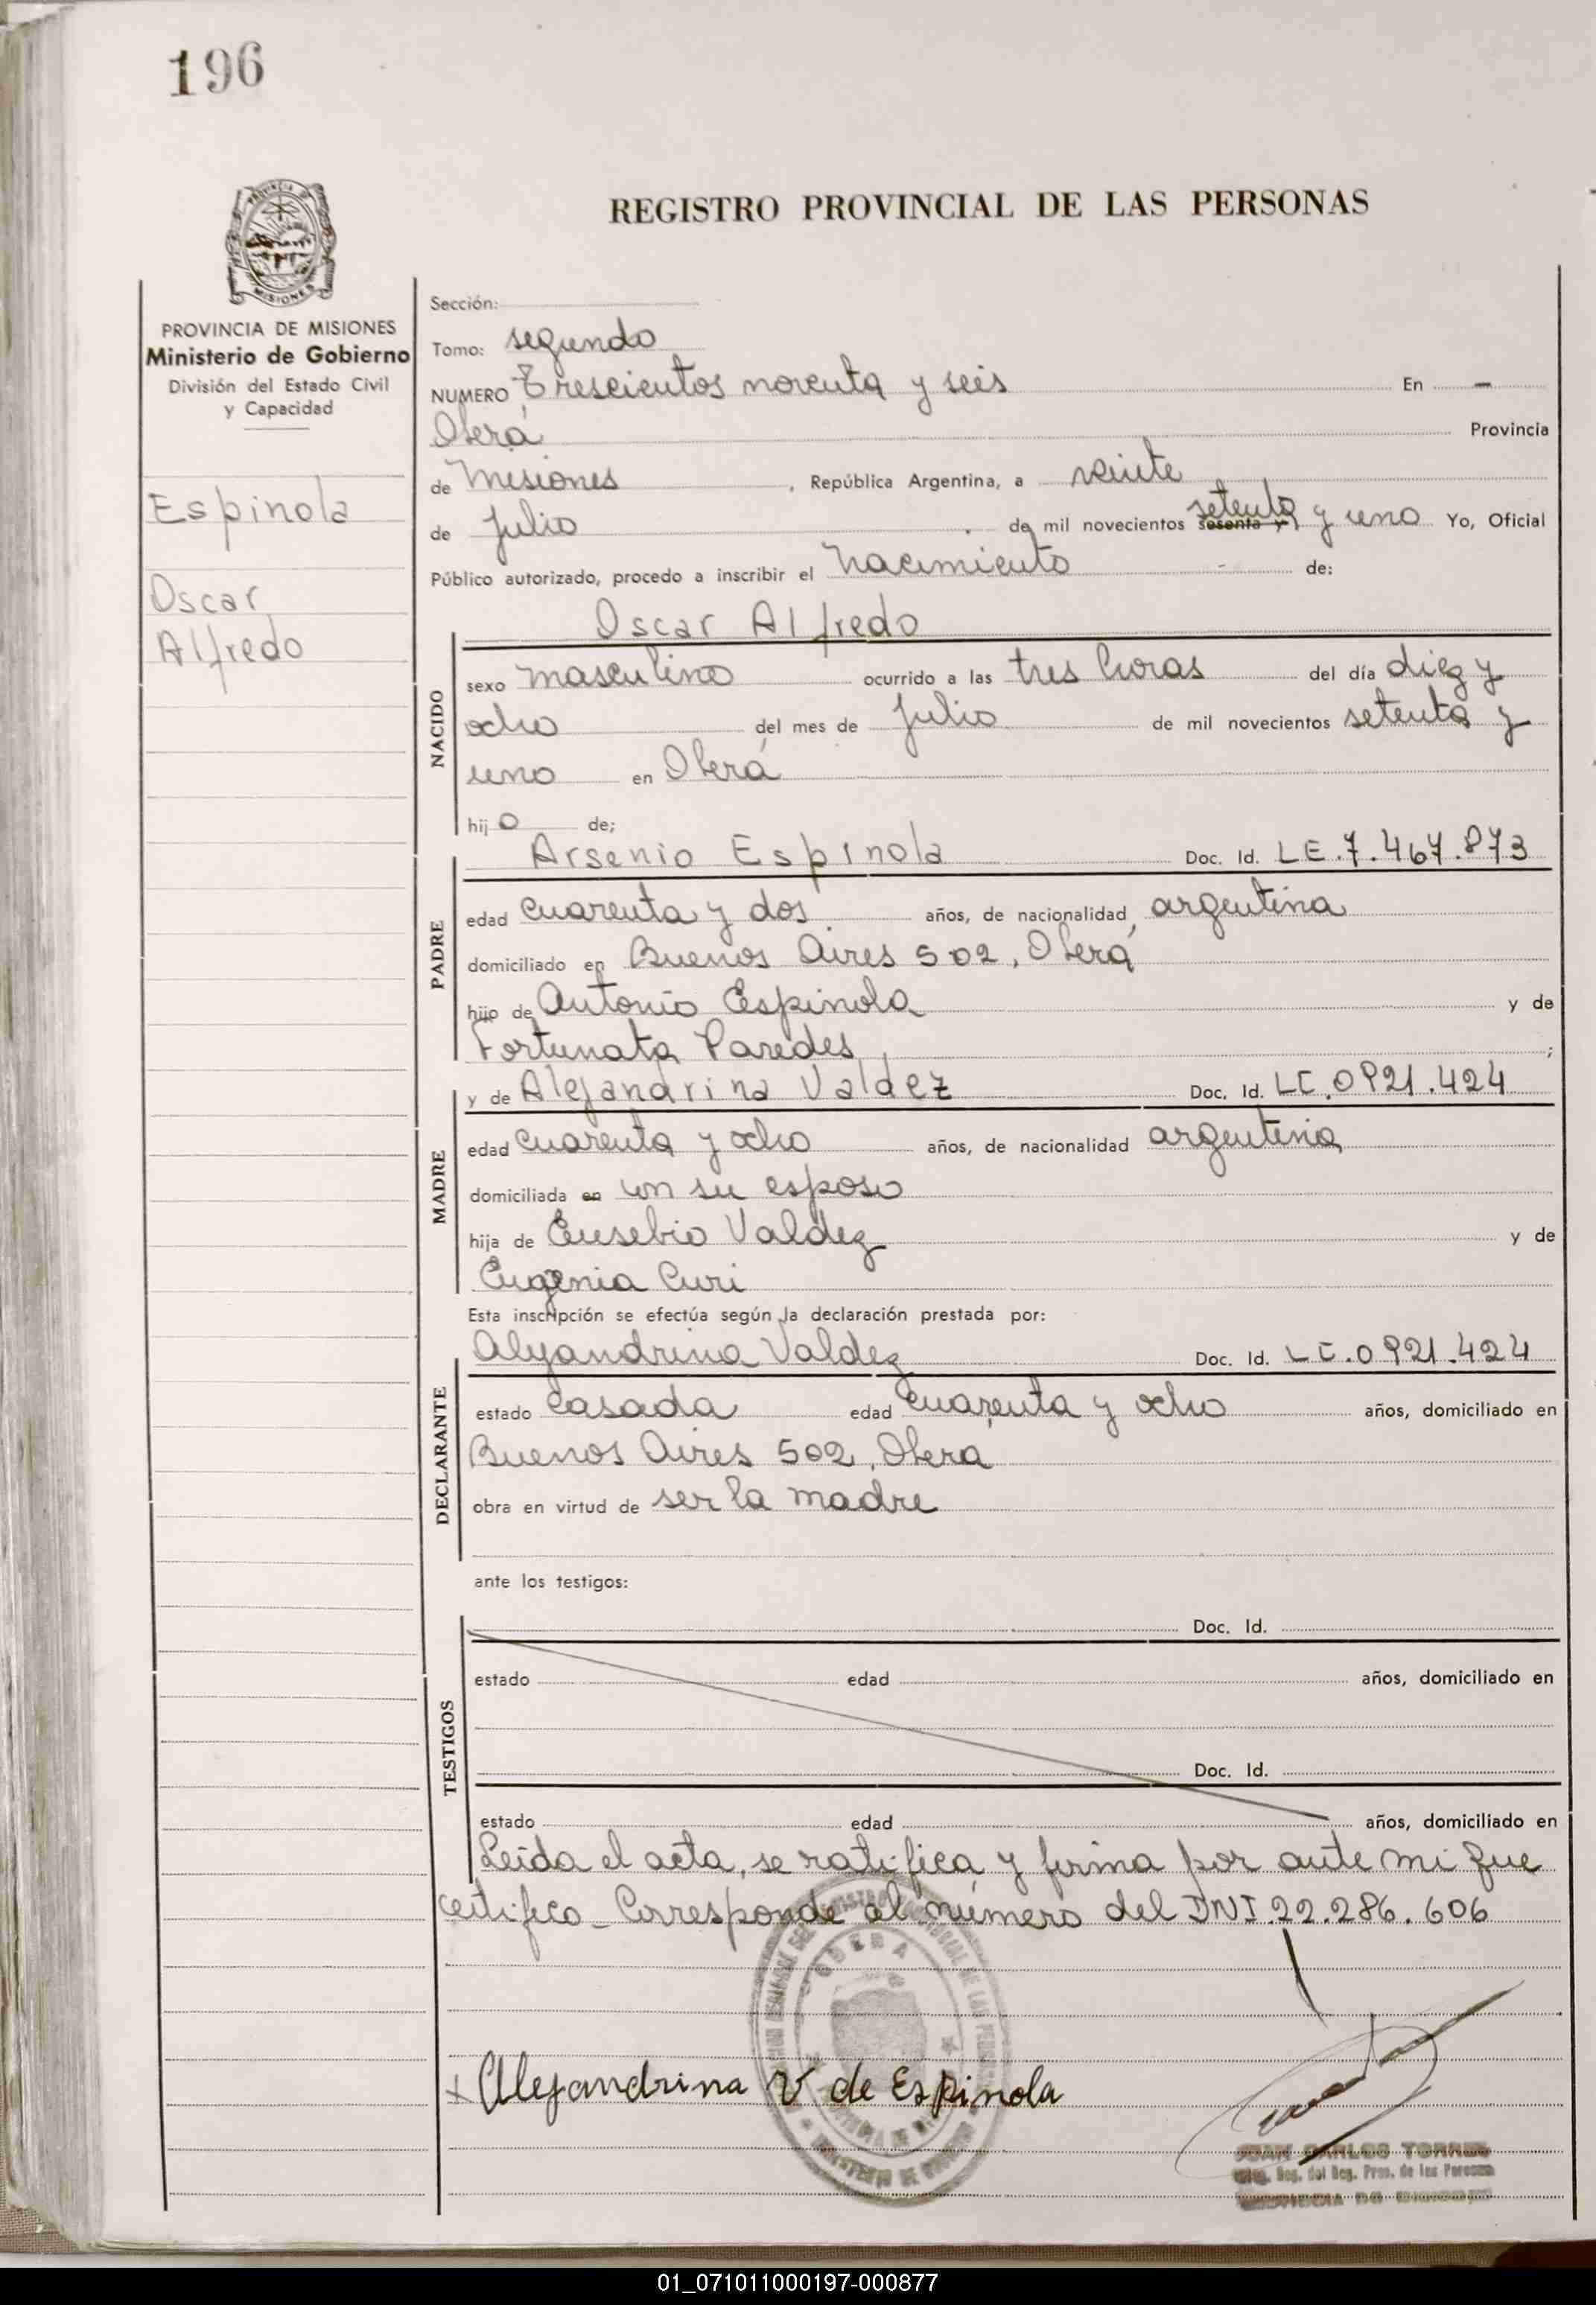 196
REGISTRO PROVINCIAL DE LAS PERSONAS
MISIONES
PROVINCIA DE MISIONES
Ministerio de Gobierno
División del Estado Civil
y Capacidad
Espinola
Oscar
Alfredo
Sección:
Tomo: segundo
NUMERO Trescientos noventa y seis En -
Oberá Provincia
de Misiones, República Argentina, a veinte
de Julio de mil novecientos sesenta y setenta y uno Yo, Oficial
Público autorizado, procedo a inscribir el Nacimiento de:
Oscar Alfredo
NACIDO
sexo masculino ocurrido a las tres horas del día diez y
ocho del mes de Julio de mil novecientos setenta y
uno en Oberá
hijo de;
Arsenio Espinola Doc. Id. L E. 7.467.873
PADRE
edad cuarenta y dos años, de nacionalidad argentina
domiciliado en Buenos Aires 502, Oberá
hijo de Antonio Espinola y de
Fortunata Paredes ;
y de Alejandrina Valdez Doc. Id. LC. 0921.424
MADRE
edad cuarenta y ocho años, de nacionalidad argentina
domiciliada en con su esposo
hija de Eusebio Valdez y de
Eugenia Curi
Esta inscripción se efectúa según la declaración prestada por:
Alejandrina Valdez Doc. Id. LC. 0921.424
DECLARANTE
estado casada edad cuarenta y ocho años, domiciliado en
Buenos Aires 502, Obera
obra en virtud de ser la madre
ante los testigos:
Doc. Id.
TESTIGOS
estado edad años, domiciliado en
Doc. Id.
estado edad años, domiciliado en
Leida el acta, se ratifica y firma por ante mi que
certifico - Corresponde al número del DNI 22.286.606
Alejandrina V de Espinola
JUAN CARLOS TORRES
del Reg. Prov. de las Personas
01_071011000197-000877